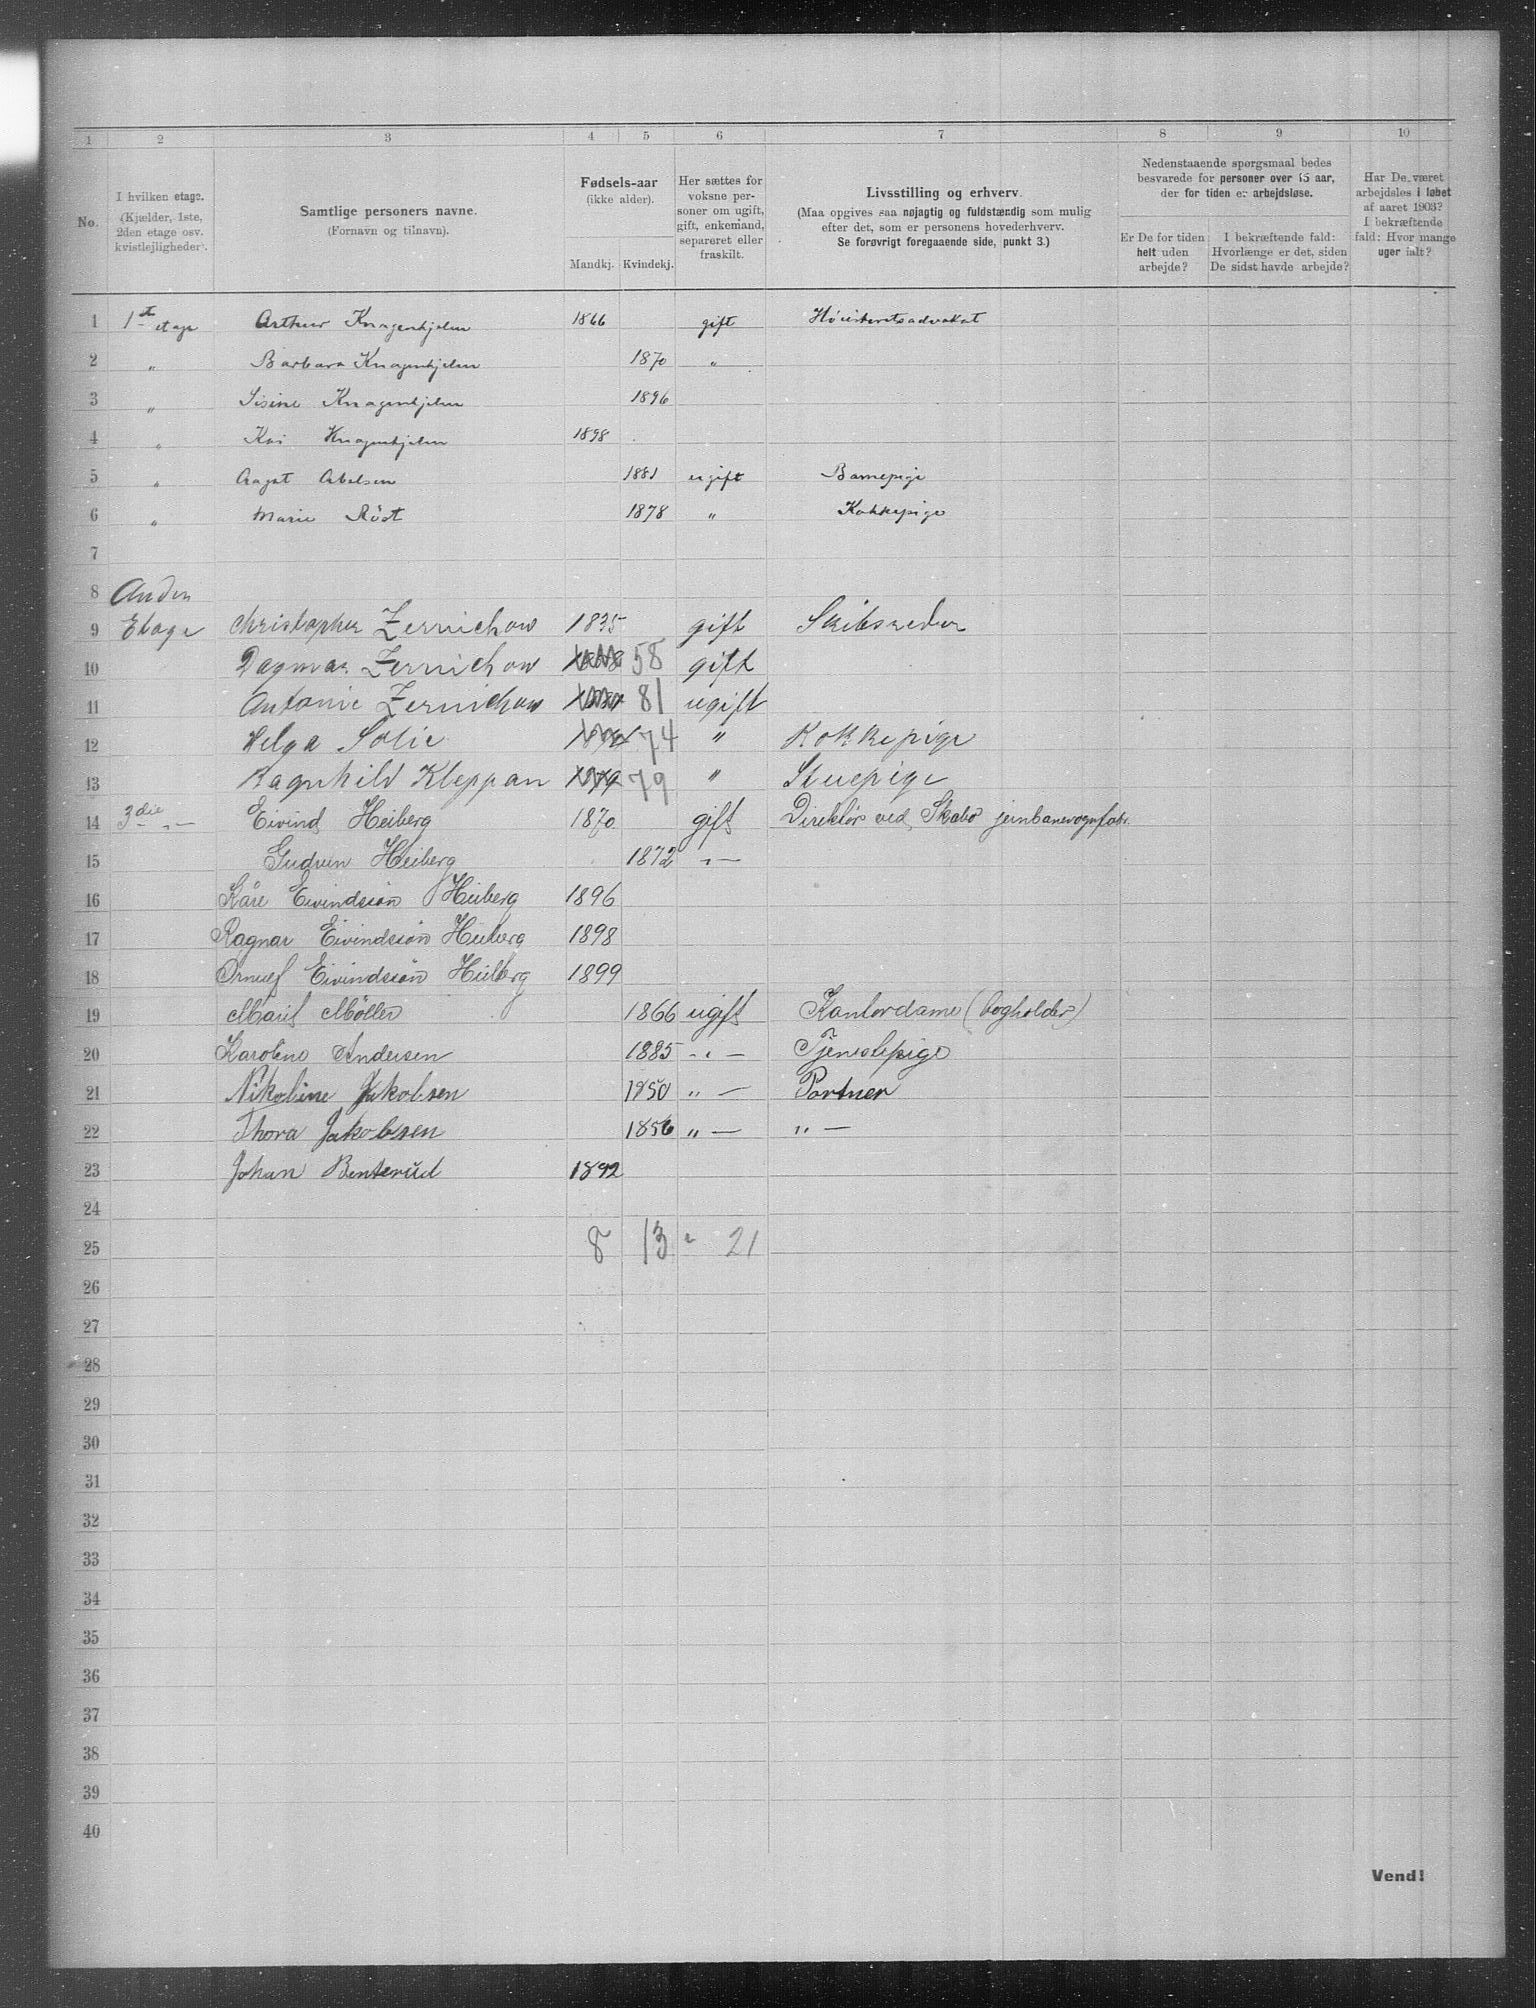 1 2 3 4 5 6 7 8 9 10
No.
I hvilken etage.
(Kjælder, 1ste,
2den etage osv.
kvistlejligheder).
Samtlige personers navne.
(Fornavn og tilnavn).
Fødsels-aar
(ikke alder).
Mandkj. Kvindekj.
Her sættes for
voksne per-
soner om ugift,
gift, enkemand,
separeret eller
fraskilt.
Livsstilling og erhverv.
(Maa opgives saa nøjagtig og fuldstændig som mulig
efter det, som er personens hovederhverv.
Se forøvrigt foregaaende side, punkt 3.)
Nedenstaaende spørgsmaal bedes
besvarede for personer over 15 aar,
der for tiden er arbejdsløse.
Er De for tiden
helt uden
arbejde?
I bekræftende fald:
Hvorlænge er det, siden
De sidst havde arbejde?
Har De været
arbejdsløs i løbet
af aaret 1903?
I bekræftende
fald: Hvor mange
uger ialt?
1 1st etage Arthur Knagenhjelm 1866 gift Høiesteretsadvokat
2 " Barbara Knagenhjelm 1870 "
3 " Sisine Knagenhjelm 1896
4 " Kai Knagenhjelm 1898
5 " Aagot Abelsen 1881 ugift Barnepige
6 " Marie Röst 1878 " Kokkepige
7
8 Anden
9 Etage Christopher Zernichow 1835 gift Skibsreder
10 Dagmar Zernichow 58 gift
11 Antonie Zernichow 81 ugift
12 Helga Solie 74 " Kokkepige
13 Ragnhild Kleppan 79 " Stuepige
14 3die -"- Eivind Heiberg 1870 gift Direktør ved Skabo jernbanevognfabr.
15 Gudrun Heiberg 1872 -"-
16 Kåre Eivindssön Heiberg 1896
17 Ragnar Eivindssön Heiberg 1898
18 Ørnulf Eivindssön Heiberg 1899
19 Marie Möller 1866 ugift Kontordame (bogholder)
20 Karoline Andersen 1885 -"- Tjenestepige
21 Nikoline Jakobsen 1850 "- Portner
22 Thora Jakobsen 1856 "- "-
23 Johan Benterud 1892
24
25 8 13 = 21
26
27
28
29
30
31
32
33
34
35
36
37
38
39
40
Vend!